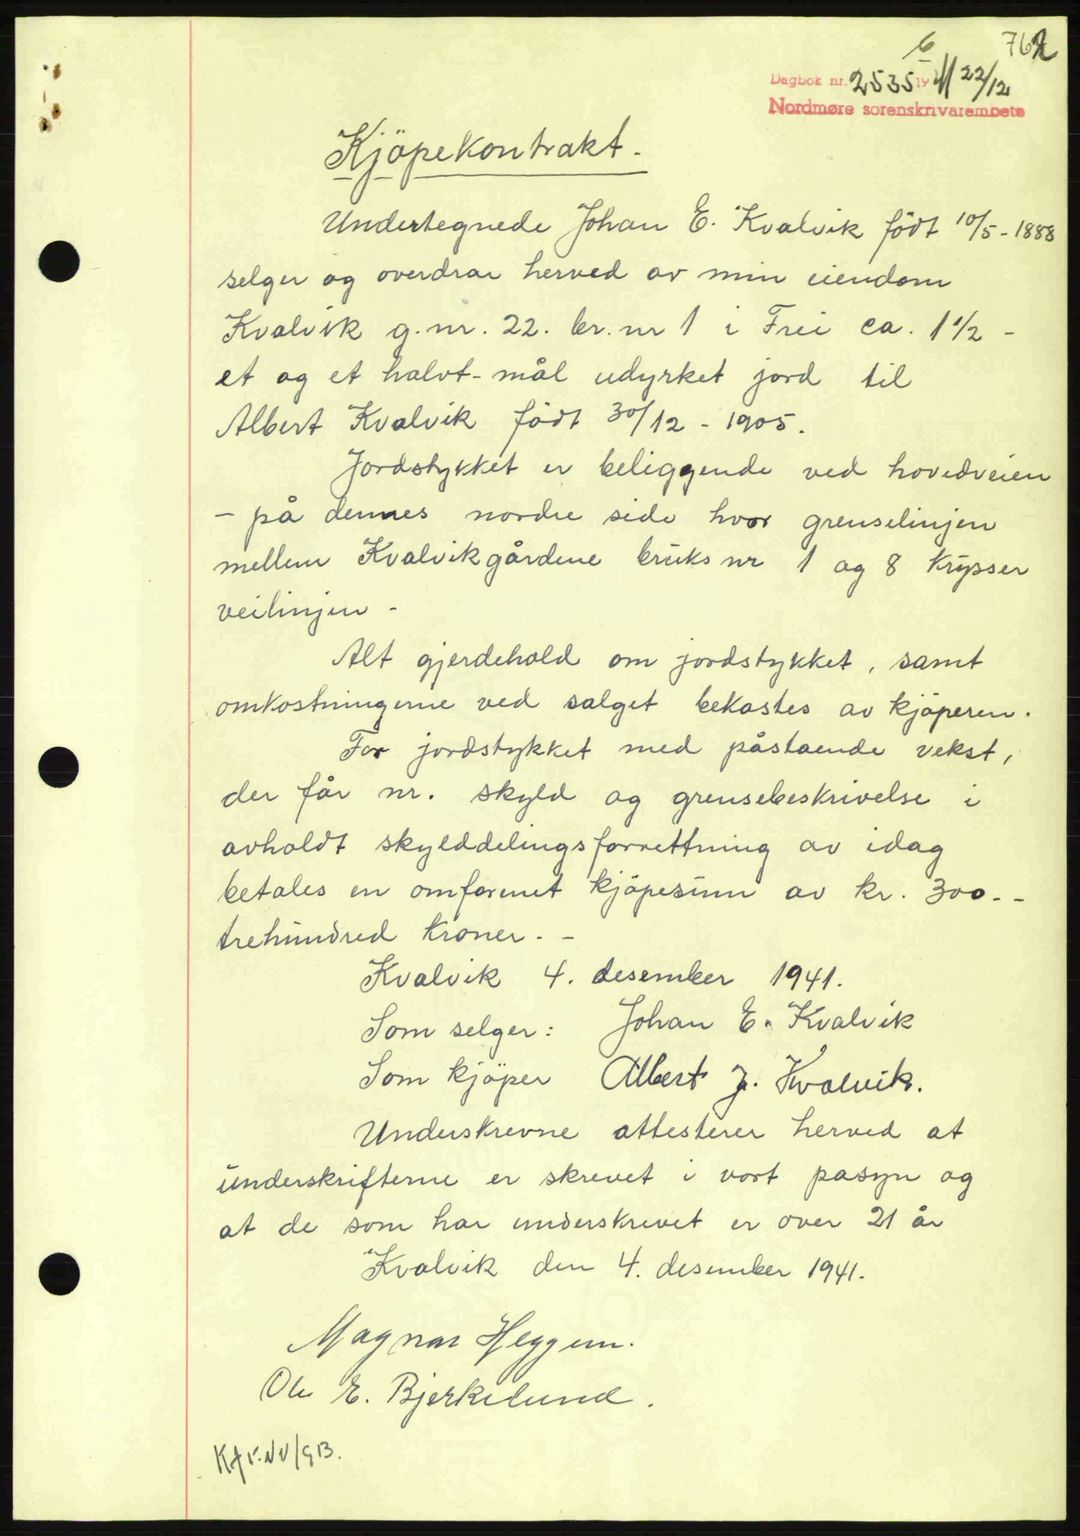 6
762
Dagbok nr. 2535 1941 22/12
Nordmøre sorenskrivarembete
Kjöpekontrakt.
Undertegnede Johan E. Kvalvik födt 10/5-1888
selger og overdrar herved av min eiendom
Kvalvik g.nr. 22. br. nr 1 i Frei ca. 1 1/2 -
et og et halvt- mål udyrket jord til
Albert Kvalvik födt 30/12 - 1905.
Jordstykket er beliggende ved hovedveien
- på dennes nordre side hvor grenselinjen
mellem Kvalvikgårdene bruks nr 1 og 8 krysser
veilinjen -
Alt gjerdehold om jordstykket, samt
omkostningerne ved salget bekostes av kjöperen.
For jordstykket med påstaende vekst,
der får nr. skyld og grensebeskrivelse i
avholdt skylddelingsforrettning av idag
betales en omforenet kjöpesum av kr. 300.-
trehundred kroner. -
Kvalvik 4. desember 1941.
Som selger: Johan E. Kvalvik
Som kjöper Albert J. Kvalvik.
Underskrevne attesterer herved at
underskrifterne er skrevet i vort påsyn og
at de som har underskrevet er over 21 år
Kvalvik den 4. desember 1941.
Magnar Heggem.
Ole E. Bjerkelund.